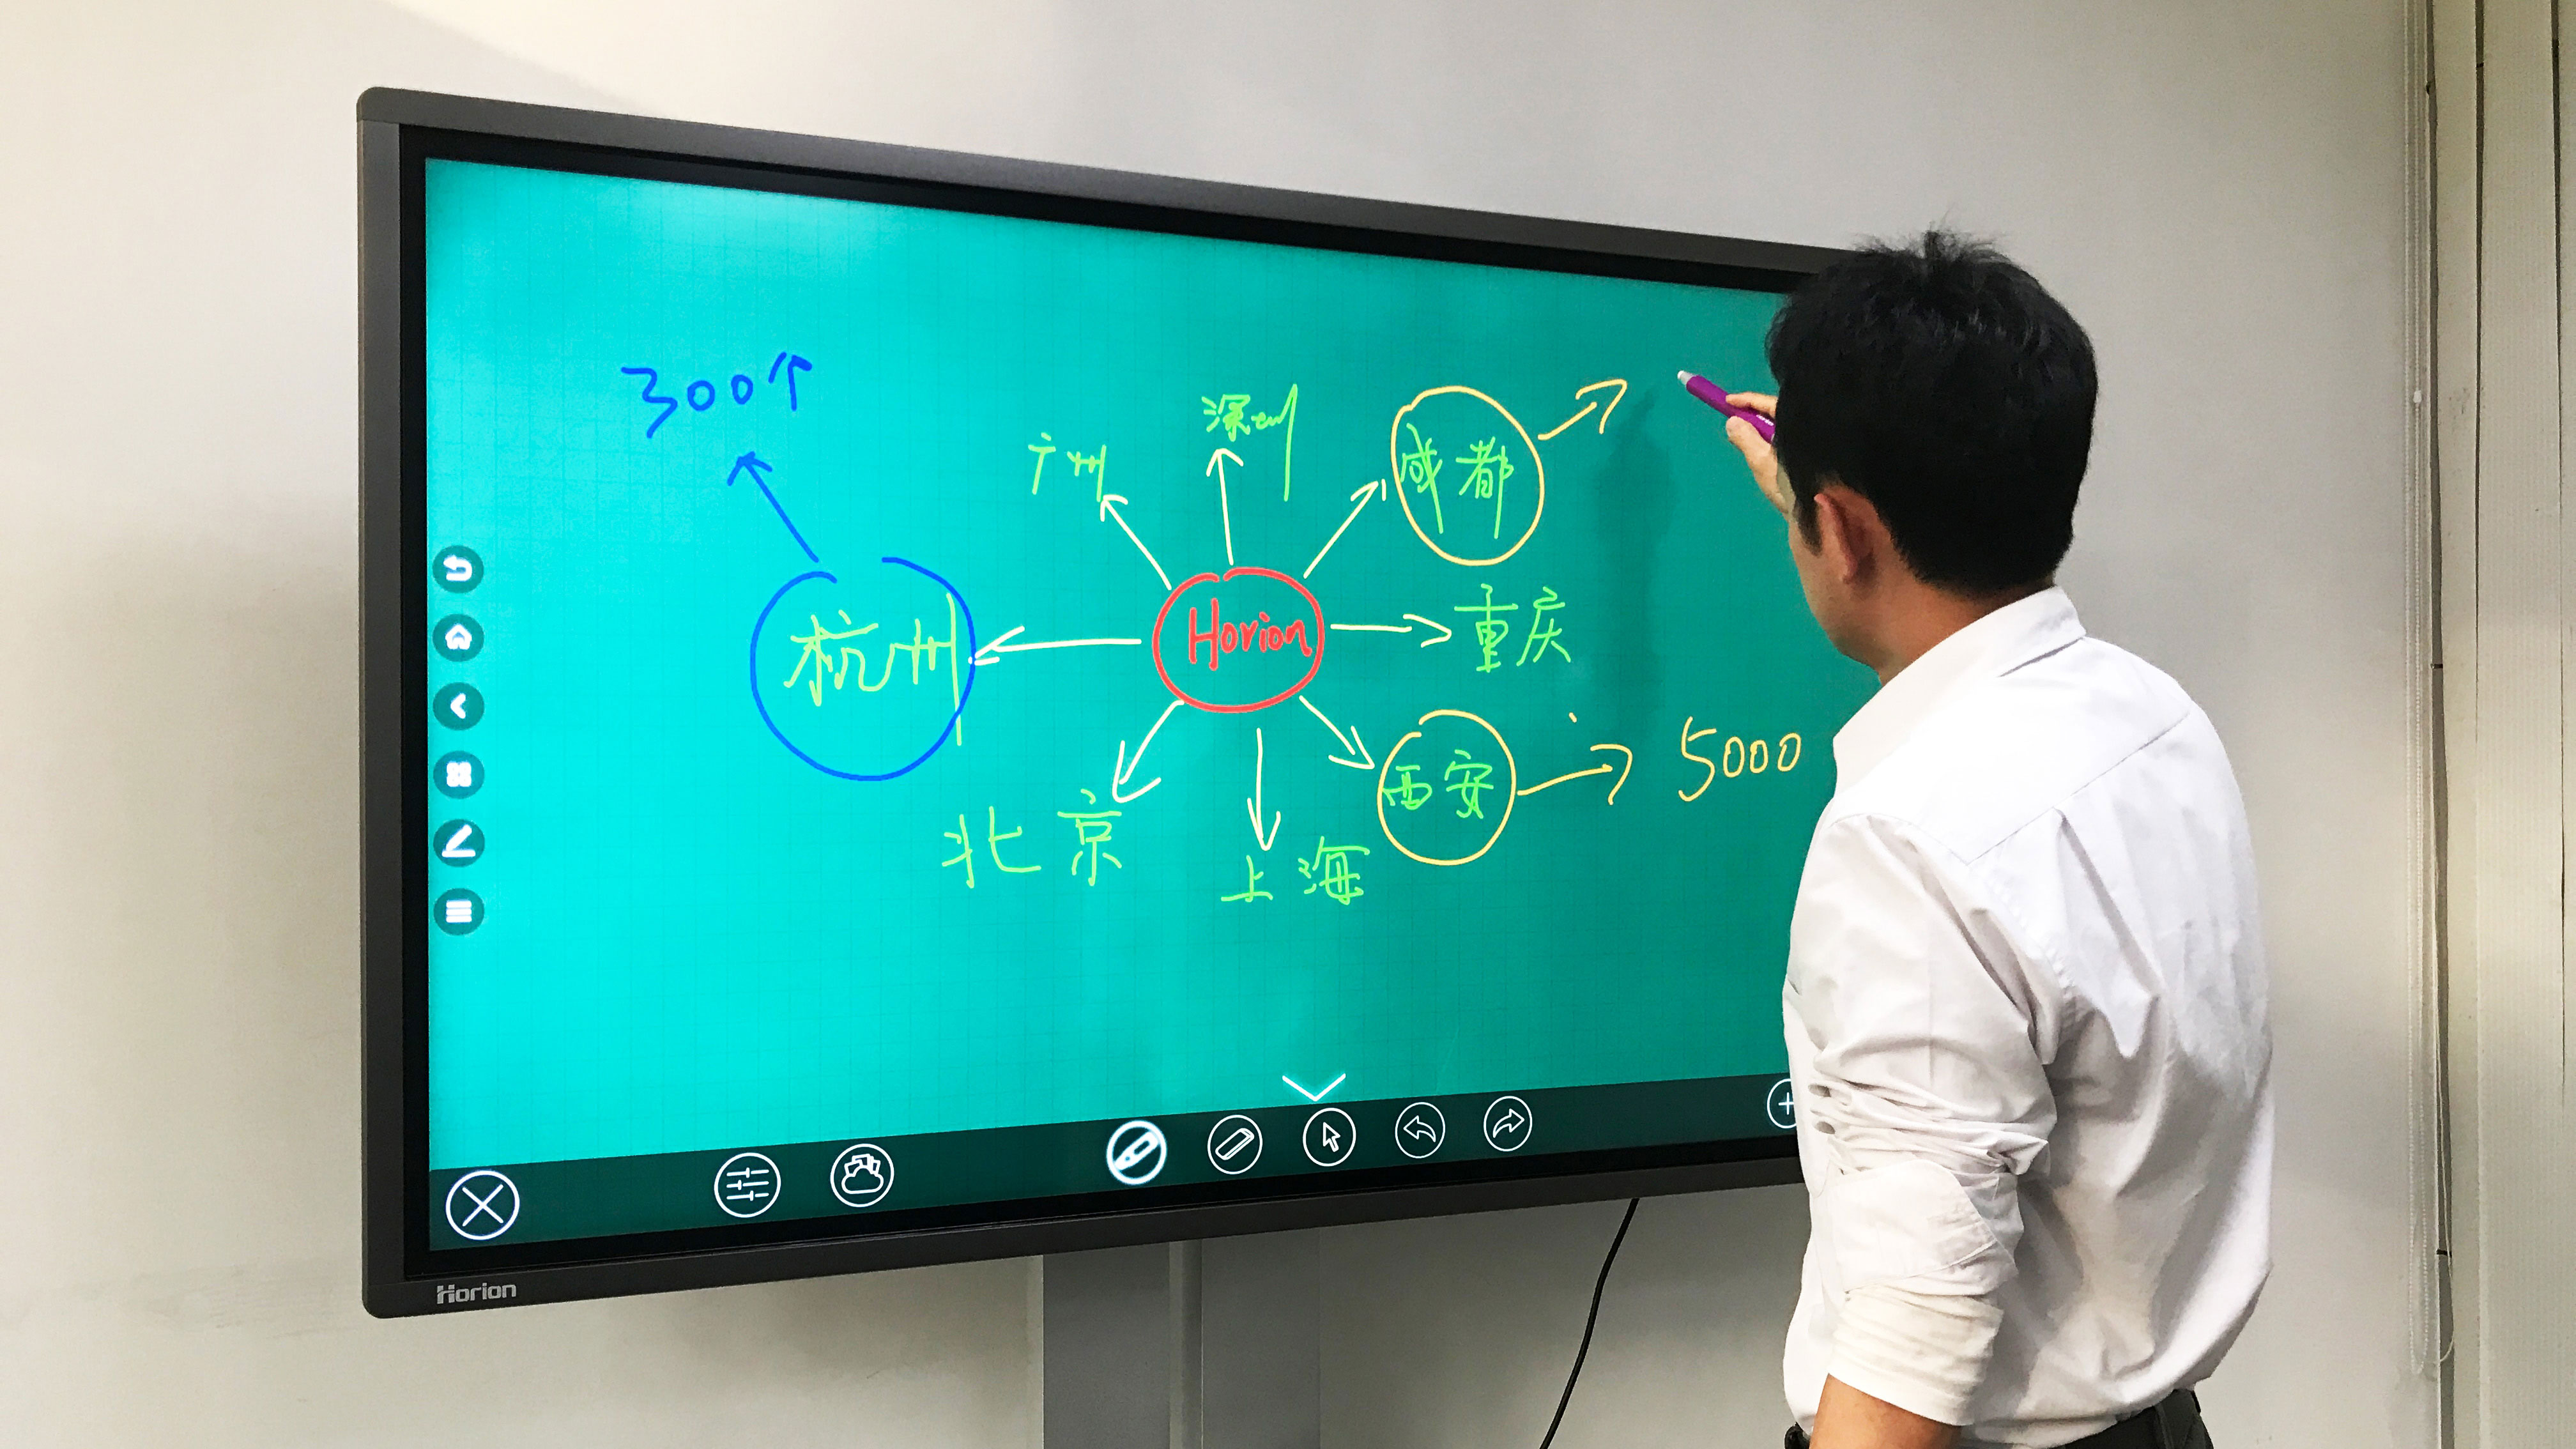 300个
深圳
广州
成都
Horion
重庆
杭州
西安
5000
北京
上海
Horion